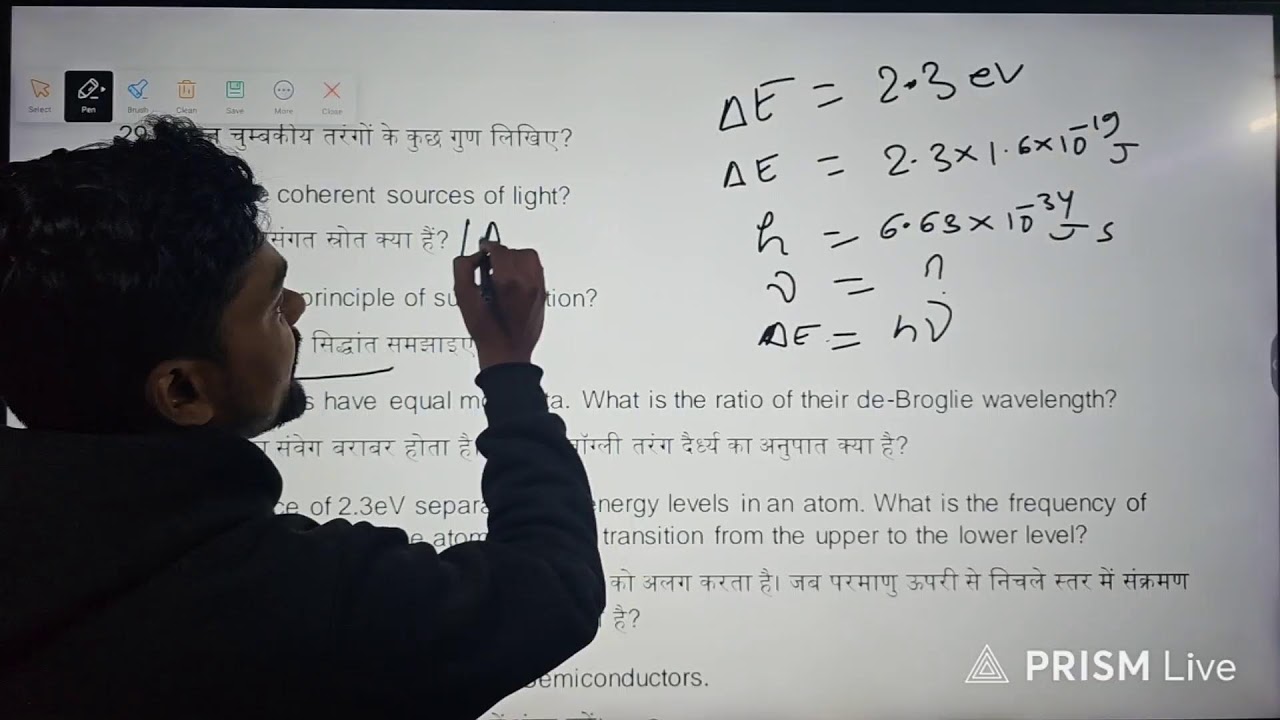 Select Pen Brush Clean Save More Close
29. चुम्बकीय तरंगों के कुछ गुण लिखिए?
coherent sources of light?
संगत स्रोत क्या हैं?
principle of su tion?
सिद्धांत समझाइए
have equal m ta. What is the ratio of their de-Broglie wavelength?
संवेग बराबर होता है। तरंग दैर्ध्य का अनुपात क्या है?
of 2.3eV separa energy levels in an atom. What is the frequency of
atom transition from the upper to the lower level?
को अलग करता है। जब परमाणु ऊपरी से निचले स्तर में संक्रमण
है?
semiconductors.
ΔE = 2.3 eV
ΔE = 2.3 × 1.6 × 10⁻¹⁹ J
h = 6.63 × 10⁻³⁴ J s
ν = ?
ΔE = hν
PRISM Live